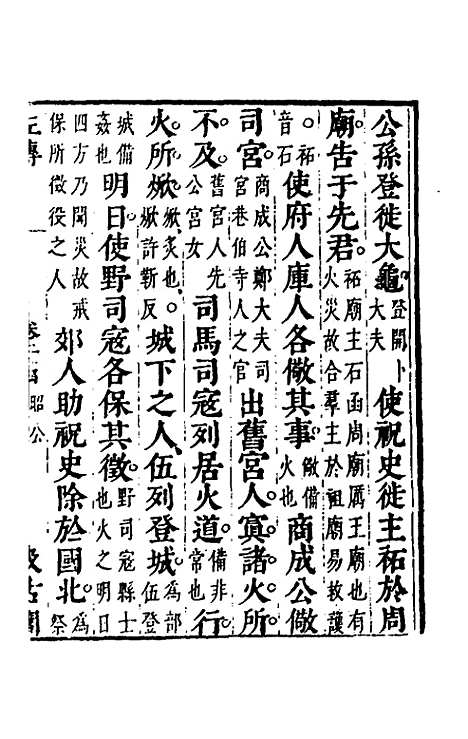 公孫登徙大龜。登開卜大夫使祝史徙主祏於周
廟告于先君。祏廟主石函周廟厲王廟也有火災故合羣主於祖廟易救護
。祏音石使府人庫人各儆其事。儆備火也商成公儆
司宮。商成公鄭大夫司宮巷伯寺人之官出舊宮人。寘諸火所
不及。舊宮人先公宮女司馬司寇列居火道。備非常也行
火所焮。焮炙也。焮許靳反城下之人伍列登城。為部伍登
城備姦也明日使野司寇各保其徵。野司寇縣士也火之明日
四方乃聞災故戒保所徵役之人郊人助祝史除於國北。為祭
左傳 昭公 汲古閣